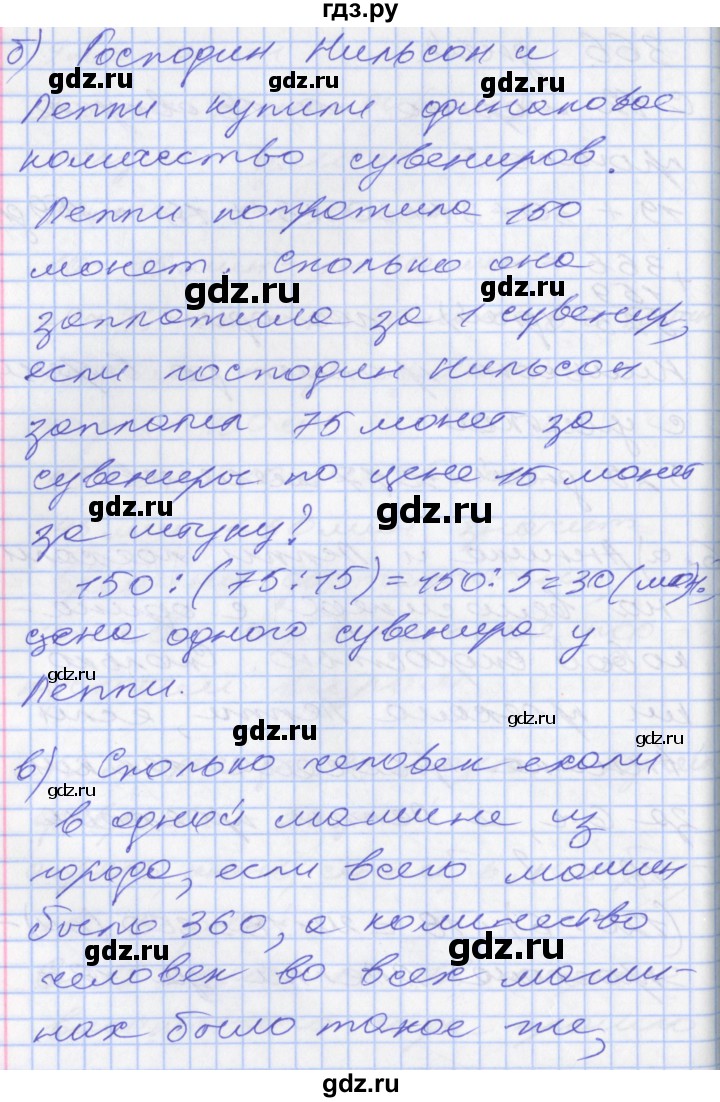 гдз.ру
б) Господин Нильсон и
gdz.ru gdz.ru
Пеппи купили одинаковое
gdz.ru
количество сувениров.
gdz.ru
Пеппи потратила 150
монет. Сколько она
gdz.ru gdz.ru
заплатила за 1 сувенир,
если господин Нильсон
gdz.ru
заплатил 75 монет за
сувениры по цене 15 монет
gdz.ru gdz.ru
за штуку?
150:(75:15)=150:5=30(мон.)
цена одного сувенира у
gdz.ru gdz.ru
Пеппи.
gdz.ru
gdz.ru gdz.ru
в) Сколько человек ехали
gdz.ru
в одной машине из
города, если всего машин
было 360, а количество
gdz.ru gdz.ru
человек во всех маши-
нах было такое же,
gdz.ru
gdz.ru